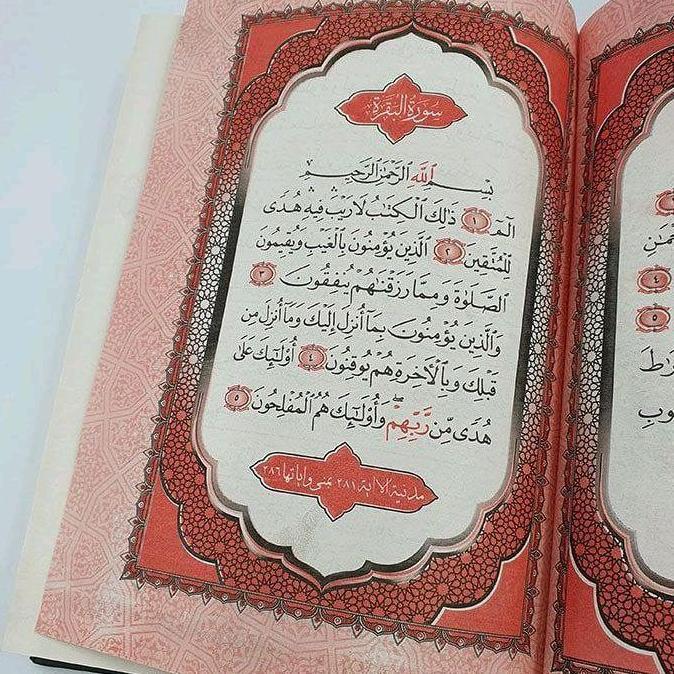 سُورَةُ البَقَرَةِ
بِسْمِ اللَّهِ الرَّحْمَٰنِ الرَّحِيمِ
الٓمٓ ١ ذَٰلِكَ الْكِتَٰبُ لَا رَيْبَ ۛ فِيهِ ۛ هُدًى
لِّلْمُتَّقِينَ ٢ الَّذِينَ يُؤْمِنُونَ بِالْغَيْبِ وَيُقِيمُونَ
الصَّلَوٰةَ وَمِمَّا رَزَقْنَٰهُمْ يُنفِقُونَ ٣
وَالَّذِينَ يُؤْمِنُونَ بِمَآ أُنزِلَ إِلَيْكَ وَمَآ أُنزِلَ مِن
قَبْلِكَ وَبِالْأَخِرَةِ هُمْ يُوقِنُونَ ٤ أُو۟لَٰٓئِكَ عَلَىٰ
هُدًى مِّن رَّبِّهِمْ ۖ وَأُو۟لَٰٓئِكَ هُمُ الْمُفْلِحُونَ ٥
مدنية الا اية ٢٨١ بمنى واياتها ٢٨٦